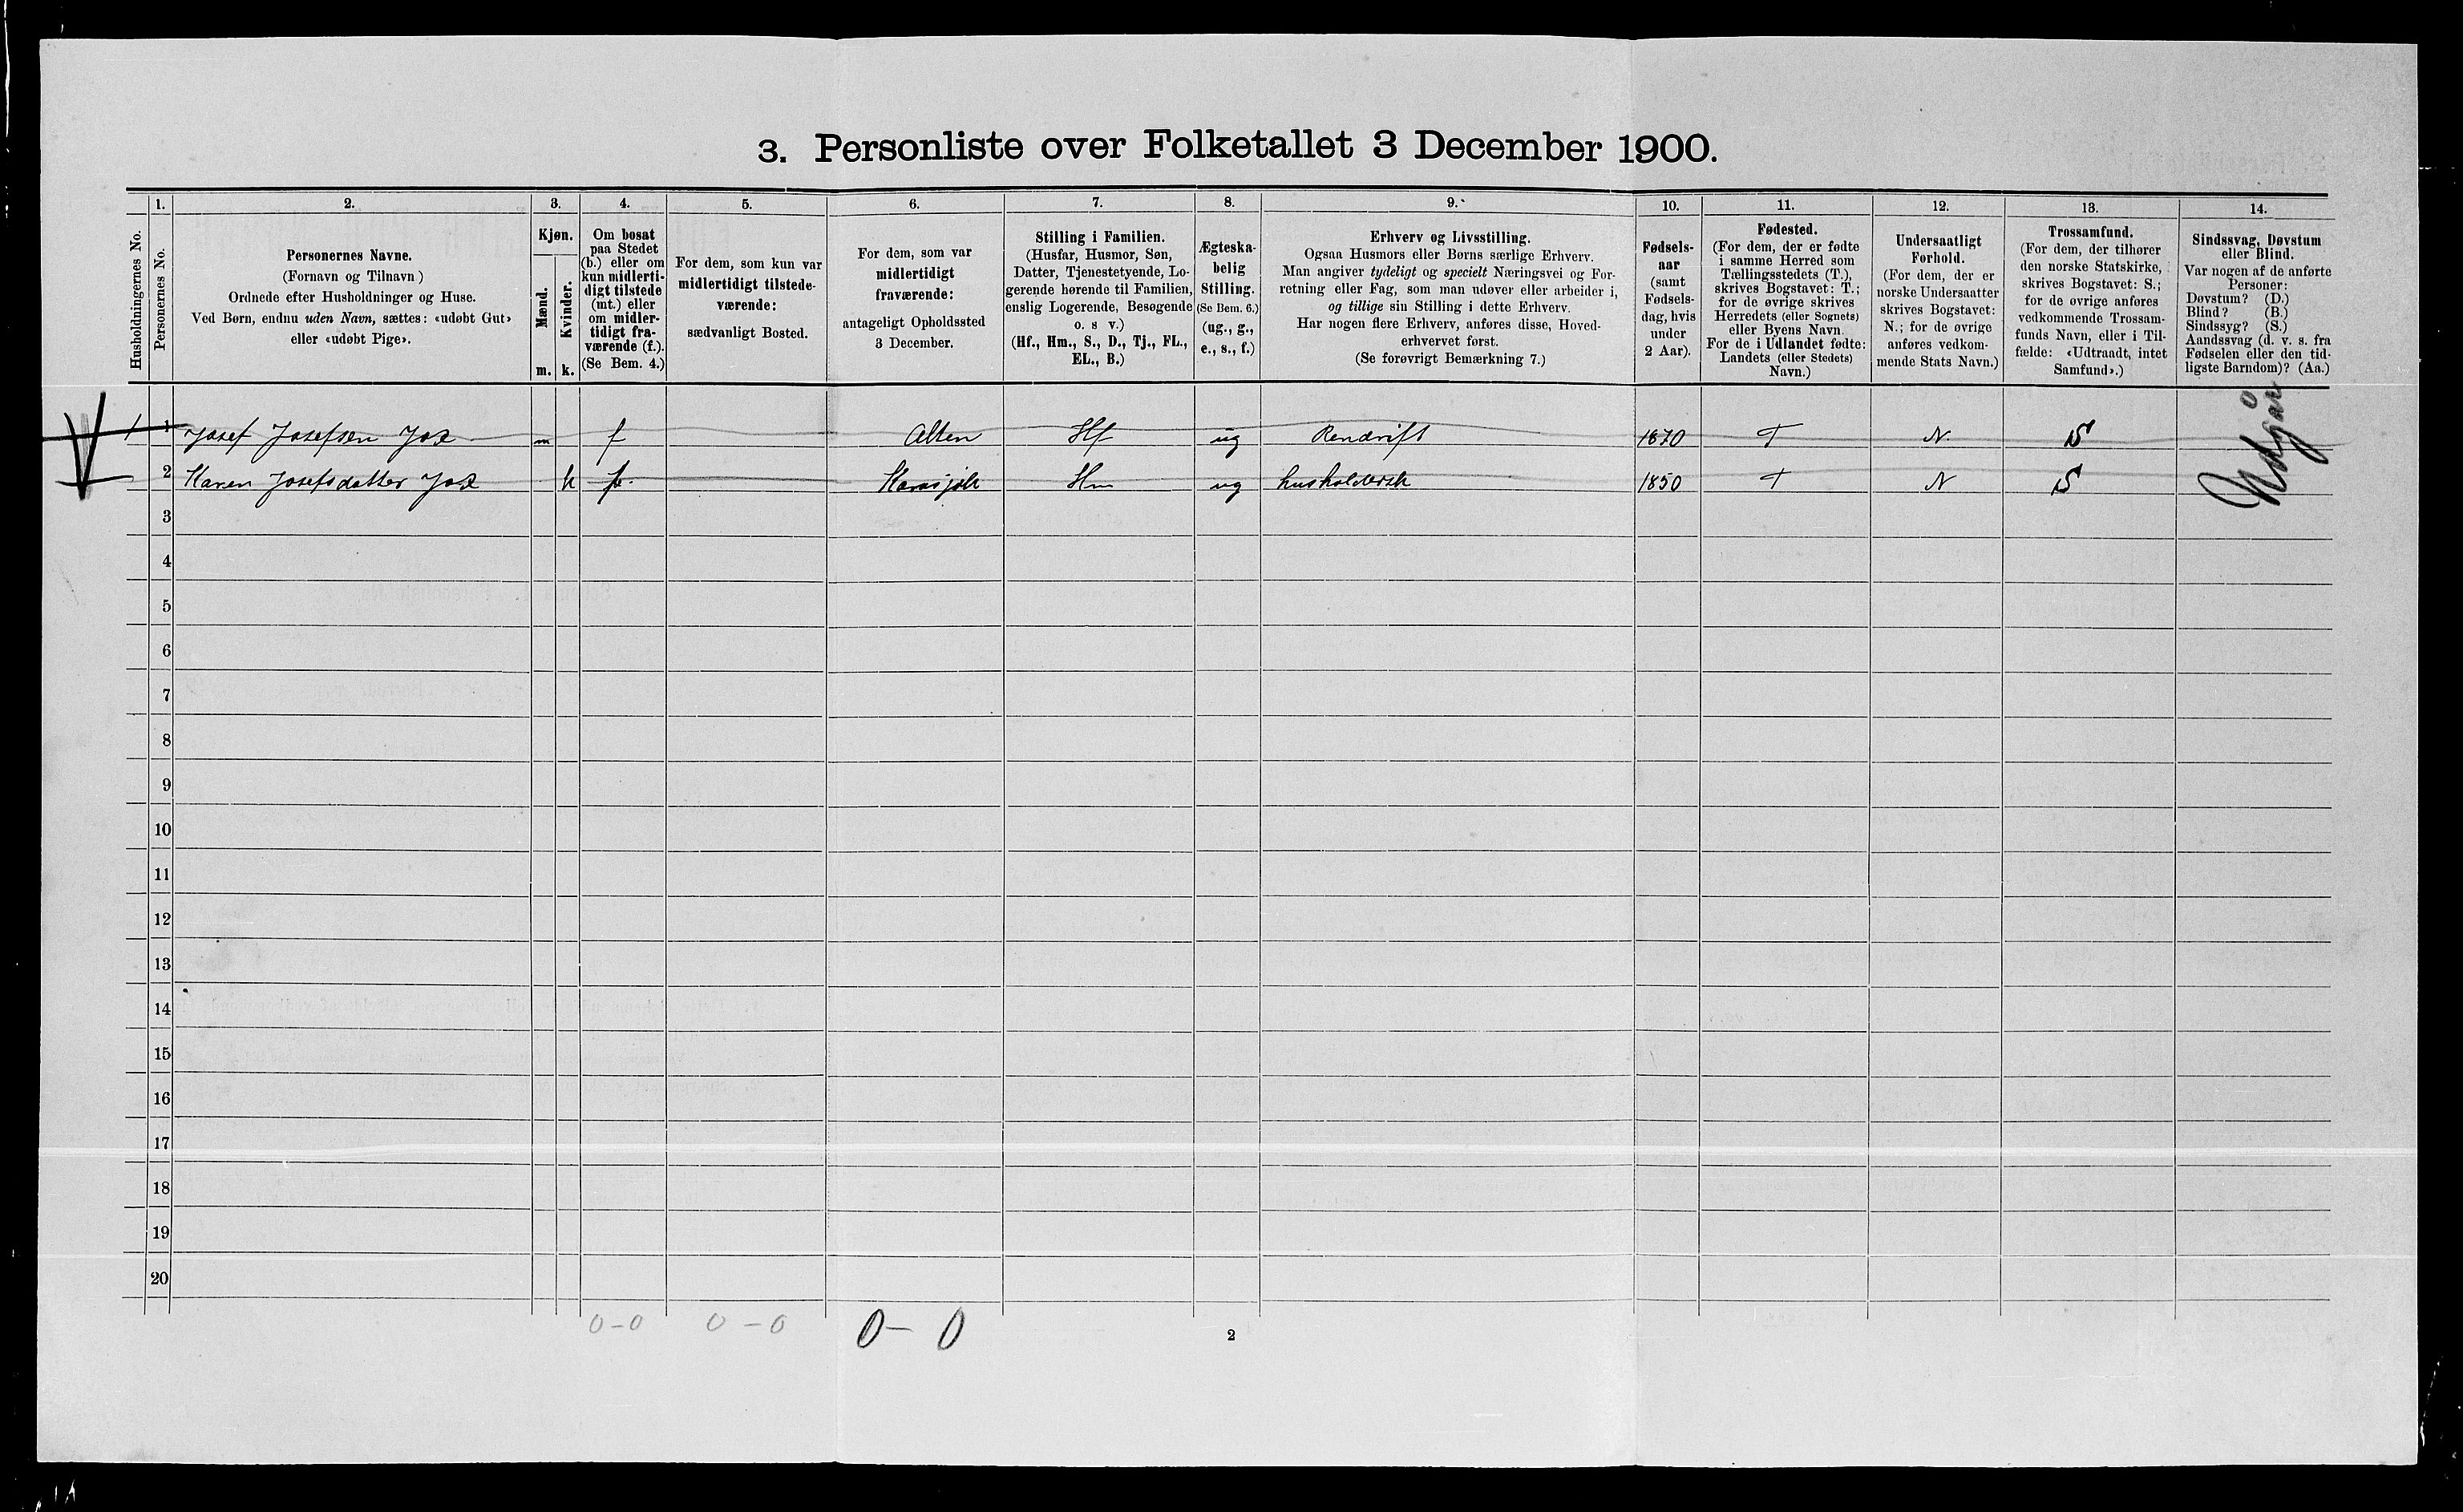 3. Personliste over Folketallet 3 December 1900.
1. 2. 3. 4. 5. 6. 7. 8. 9. 10. 11. 12. 13. 14.
Husholdningernes No.
Personernes No.
Personernes Navne.
(Fornavn og Tilnavn)
Ordnede efter Husholdninger og Huse.
Ved Børn, endnu uden Navn, sættes: «udøbt Gut»
eller «udøbt Pige».
Kjøn.
Mænd.
Kvinder.
m. k.
Om bosat
paa Stedet
(b.) eller om
kun midlerti-
digt tilstede
(mt.) eller
om midler-
tidigt fra-
værende (f.).
(Se Bem. 4.)
For dem, som kun var
midlertidigt tilstede-
værende:
sædvanligt Bosted.
For dem, som var
midlertidigt
fraværende:
antageligt Opholdssted
3 December.
Stilling i Familien.
(Husfar, Husmor, Søn,
Datter, Tjenestetyende, Lo-
gerende hørende til Familien,
enslig Logerende, Besøgende
o. s v.)
(Hf., Hm., S., D., Tj., FL.,
EL., B.)
Ægteska-
belig
Stilling.
(Se Bem. 6.)
(ug., g.,
e., s., f.)
Erhverv og Livsstilling.
Ogsaa Husmors eller Børns særlige Erhverv.
Man angiver tydeligt og specielt Næringsvei og For-
retning eller Fag, som man udøver eller arbeider i,
og tillige sin Stilling i dette Erhverv.
Har nogen flere Erhverv, anføres disse, Hoved-
erhvervet først.
(Se forøvrigt Bemærkning 7.)
Fødsels-
aar
(samt
Fødsels-
dag, hvis
under
2 Aar).
Fødested.
(For dem, der er fødte
i samme Herred som
Tællingsstedets (T.),
skrives Bogstavet: T.;
for de øvrige skrives
Herredets (eller Sognets)
eller Byens Navn.
For de i Udlandet fødte:
Landets (eller Stedets)
Navn.)
Undersaatligt
Forhold.
(For dem, der er
norske Undersaatter
skrives Bogstavet:
N.; for de øvrige
anføres vedkom-
mende Stats Navn.)
Trossamfund.
(For dem, der tilhører
den norske Statskirke,
skrives Bogstavet: S.;
for de øvrige anføres
vedkommende Trossam-
funds Navn, eller i Til-
fælde: «Udtraadt, intet
Samfund».)
Sindssvag, Døvstum
eller Blind.
Var nogen af de anførte
Personer:
Døvstum? (D.)
Blind? (B.)
Sindssyg? (S.)
Aandssvag (d. v. s. fra
Fødselen eller den tid-
ligste Barndom)? (Aa.)
1 1 Josef Josefsen m f Alten Hf ug Rendrift 1870 T N. S
2 Karen Josefsdatter k f. Karasjok Hm ug husholderske 1850 T N S
Udgår
3
4
5
6
7
8
9
10
11
12
13
14
15
16
17
18
19
20
0-0 0-0 0-0
2